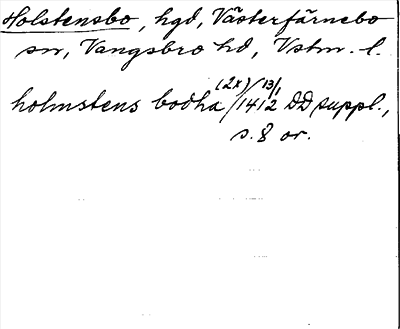 Holstensbo, hgd, Västerfärnebo
sn, Vangsbro hd, Vstm. l.
(2x) 13/1
holmstens bodha /1412 DD suppl.,
s. 8 or.